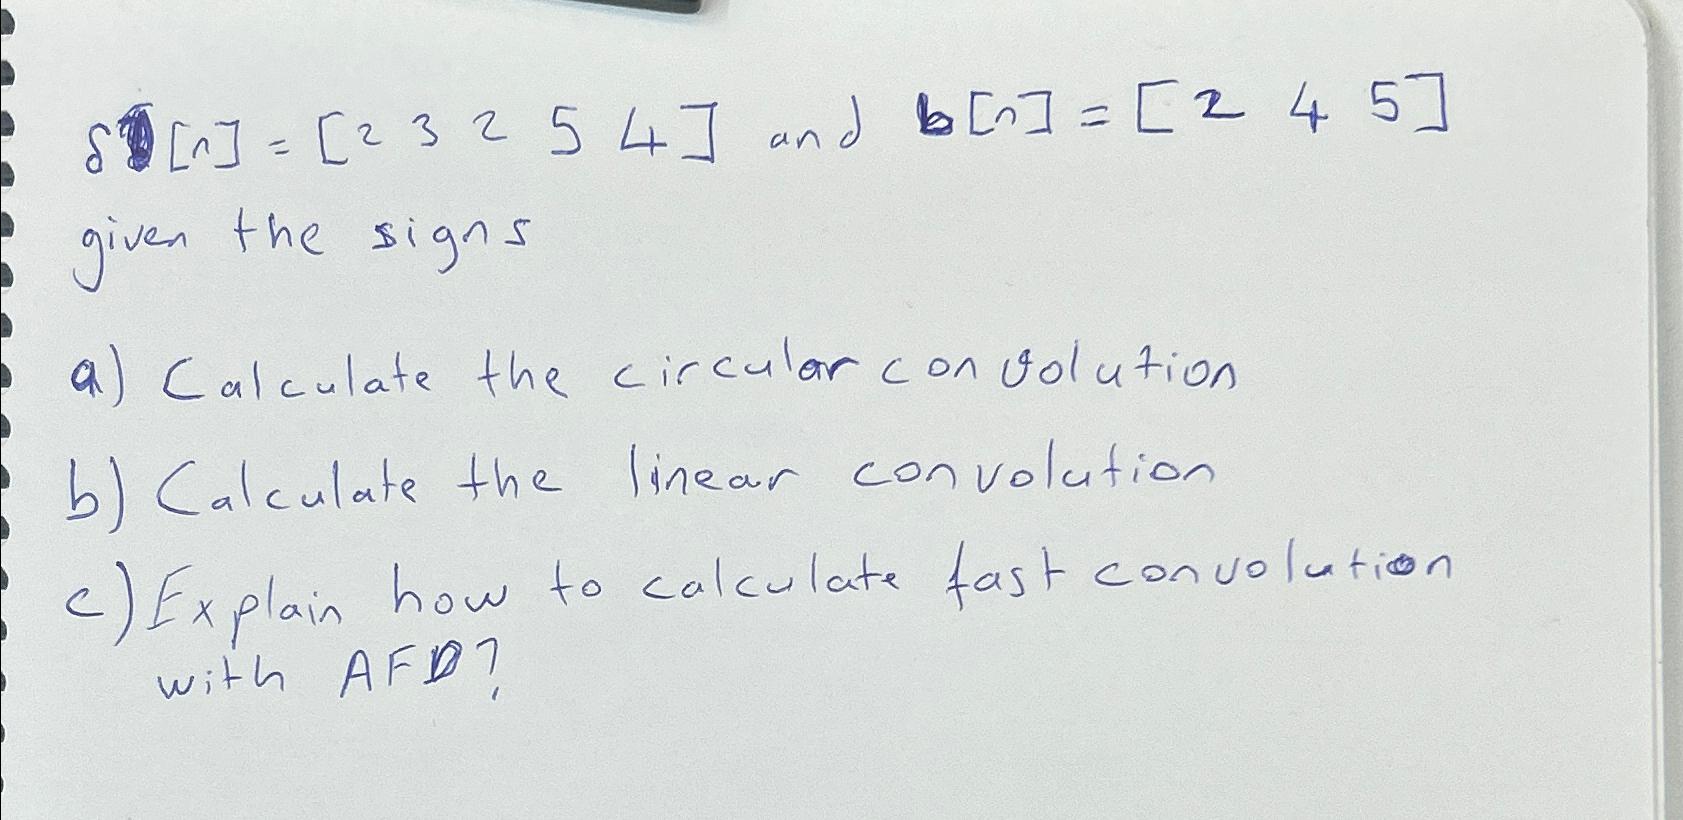 δ[n] = [2 3 2 5 4] and b[n] = [2 4 5]
given the signs
a) Calculate the circular convolution
b) Calculate the linear convolution
c) Explain how to calculate fast convolution
with AFD?